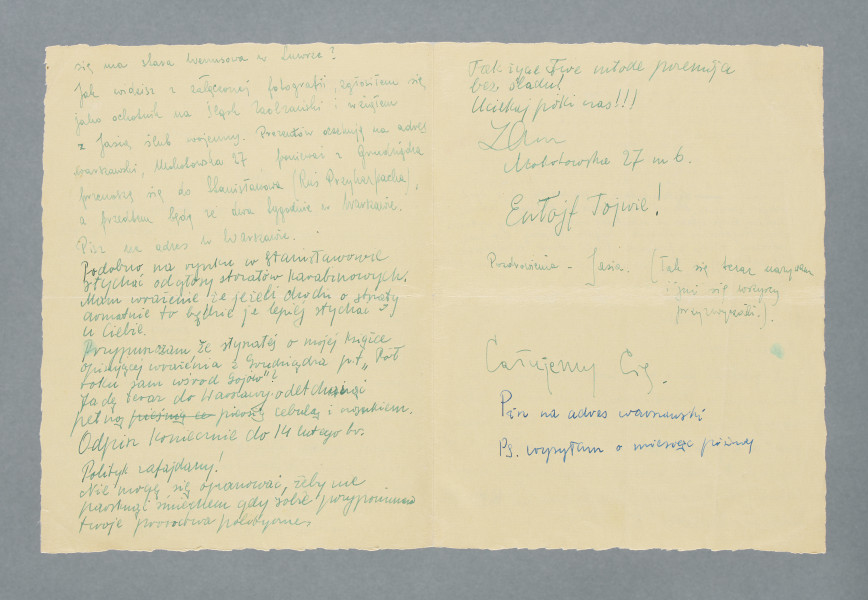 się ma sława w
Jak widzisz z załączonej fotografii, zgłosiłem się
jako ochotnik na Śląsk Zaolzański i wziąłem
z Jasią ślub wojenny. oczekuję na adres
Warszawski, Mokotowska 27 ponieważ z Grudziądza
przenoszę się do Stanisławowa
a przedtem będę ze dwa tygodnie w Warszawie.
Pisz na adres w Warszawie.
Podobno na rynku w Stanisławowie
słychać odgłosy strzałów karabinowych.
Mam wrażenie że jeżeli chodzi o strzały
to będzie je lepiej słychać
u Ciebie.
Przypuszczam, że słyszałeś o mojej książce
opisującej wrażenia z Grudziądza p.t. „Pół
roku sam wśród Gojów"?
Jadę teraz do Warszawy odetchnąć
pełną piersią cebulą i czosnkiem.
Odpisz koniecznie do 14 lutego br.
Polityk zafajdany!
Nie mogę się opanować, żeby nie
parsknąć śmiechem gdy sobie przypomnę
twoje proroctwa polityczne.
Tak życie Twe młode przemija
bez śladu!
Uciekaj póki czas!!!
Mokotowska 27 m 6.
!
Pozdrowienia – Jasia. (Tak się teraz nazywam
i już się wszyscy
przyzwyczaili.).
Całujemy Cię.
Pisz na adres warszawski
Ps. wysyłam o miesiąc później